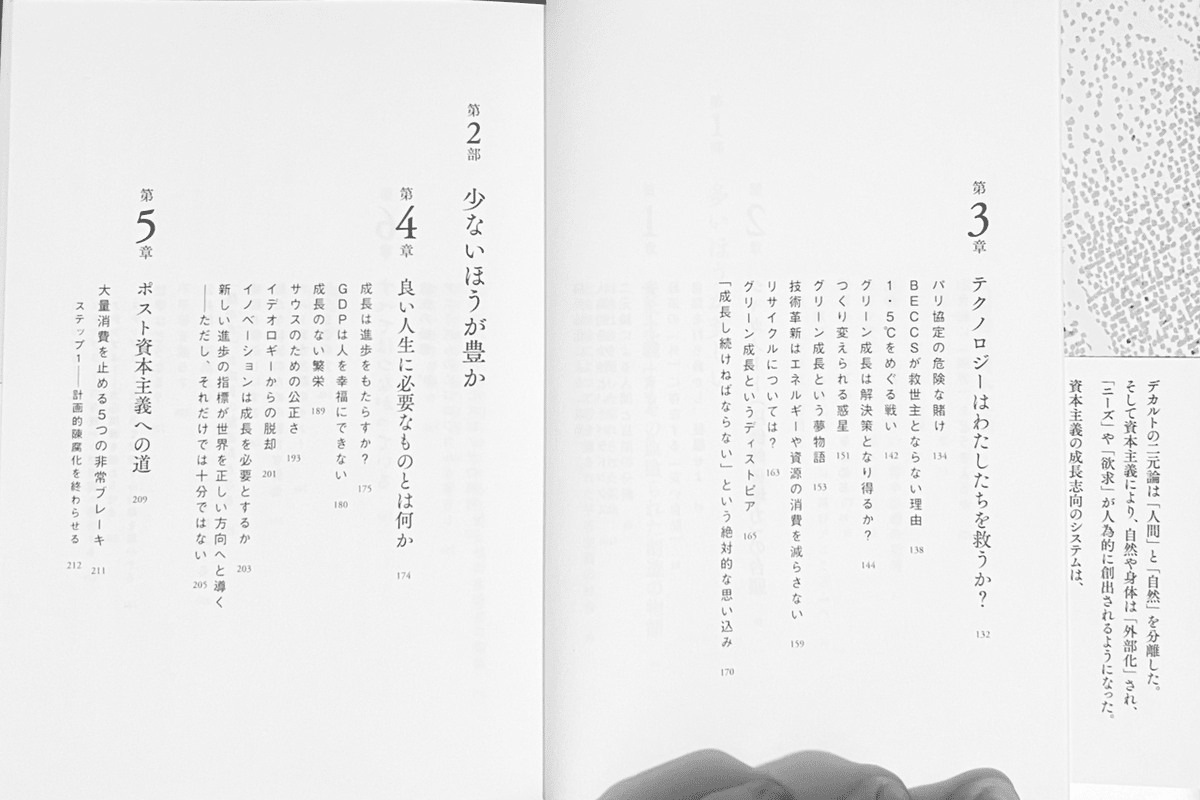 デカルトの二元論は「人間」と「自然」を分離した。
そして資本主義により、自然や身体は「外部化」され、
「ニーズ」や「欲求」が人為的に創出されるようになった。
資本主義の成長志向のシステムは、
第3章 テクノロジーはわたしたちを救うか? 132
パリ協定の危険な賭け 134
BECCSが救世主とならない理由 138
1・5℃をめぐる戦い 142
グリーン成長は解決策となり得るか? 144
つくり変えられる惑星 151
グリーン成長という夢物語 153
技術革新はエネルギーや資源の消費を減らさない 159
リサイクルについては? 163
グリーン成長というディストピア 165
「成長し続けねばならない」という絶対的な思い込み 170
第2部 少ないほうが豊か
第4章 良い人生に必要なものとは何か 174
成長は進歩をもたらすか? 175
GDPは人を幸福にできない 180
成長のない繁栄 189
サウスのための公正さ 193
イデオロギーからの脱却 201
イノベーションは成長を必要とするか 203
新しい進歩の指標が世界を正しい方向へと導く
――ただし、それだけでは十分ではない 205
第5章 ポスト資本主義への道 209
大量消費を止める5つの非常ブレーキ 211
ステップ1――計画的陳腐化を終わらせる 212